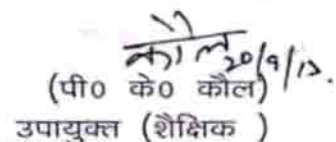 कौल 20/9/12.
(पी0 के0 कौल)
उपायुक्त (शैक्षिक )